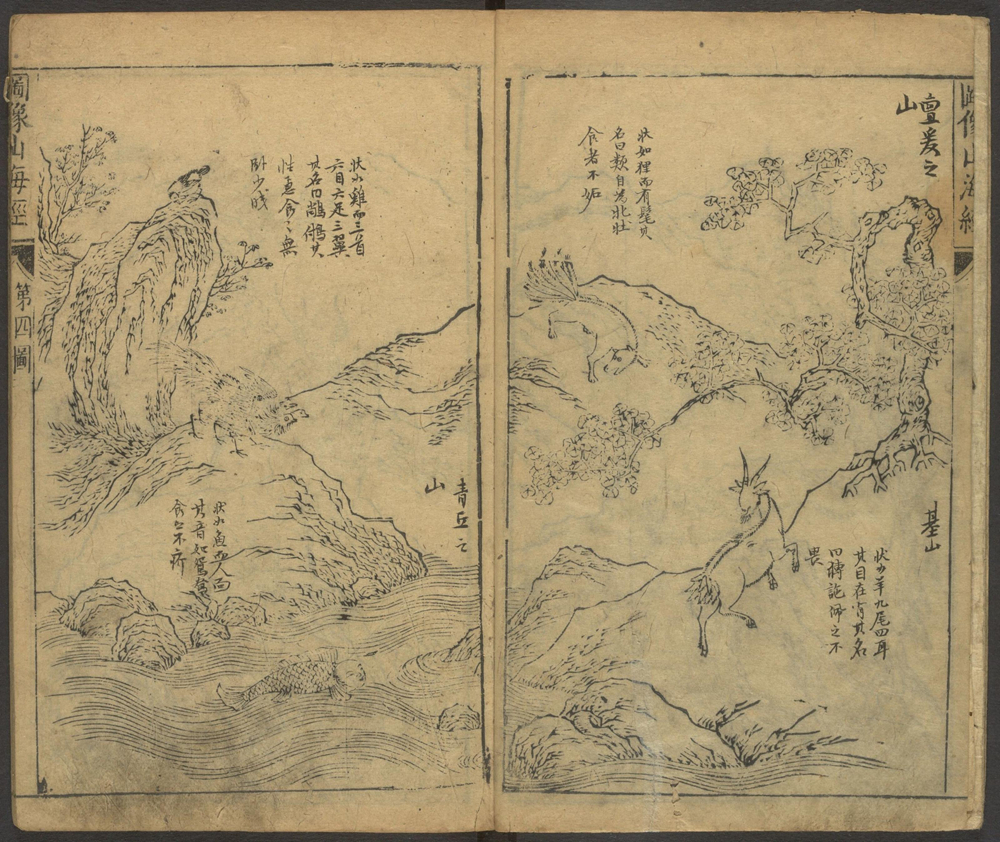 圖像山海經
亶爰之
山
狀如狸而有髦其
名曰類自為牝牡
食者不妬
基山
狀如羊九尾四耳
其目在背其名
曰猼訑佩之不
畏
狀如雞而三首
六目六足三翼
其名曰其
性急食之無
卧少
青丘之
山
狀如魚而人面
其音如鴛鴦
食之不疥
圖像山海經
第四圖